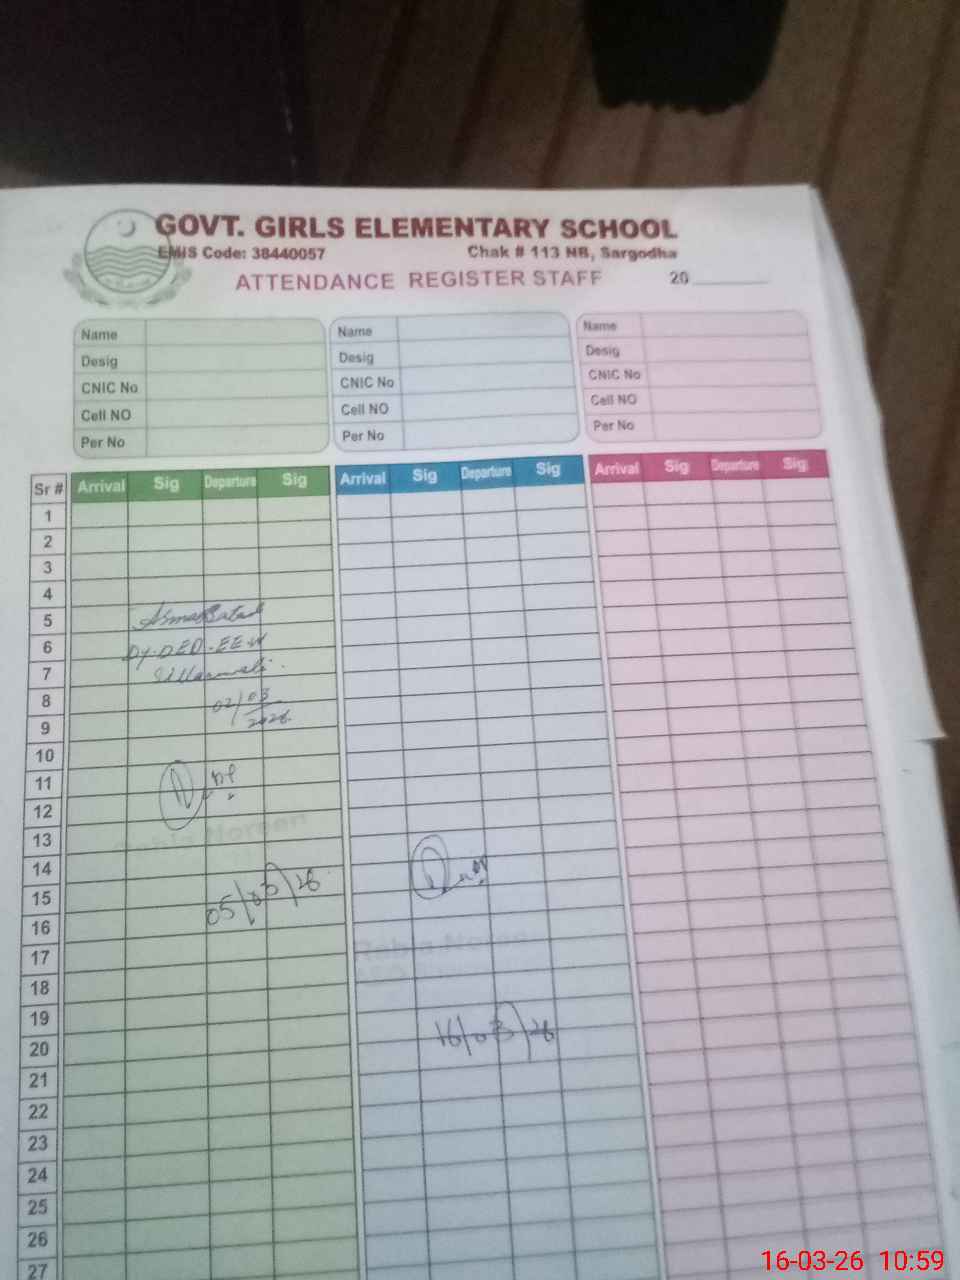 GOVT. GIRLS ELEMENTARY SCHOOL
EMIS Code: 38440057 Chak # 113 NB, Sargodha
ATTENDANCE REGISTER STAFF 20
Name Name Name
Desig Desig Desig
CNIC No CNIC No CNIC No
Cell NO Cell NO Cell NO
Per No Per No Per No
Sr # Arrival Sig Departure Sig Arrival Sig Departure Sig Arrival Sig Departure Sig
1
2
3
4
5 Asma
6 DY-DEO-EE-W
7
8 02/03
9 2026
10
11
12
13
14
15 05/03/26
16
17
18
19
20 16/03/26
21
22
23
24
25
26
27
16-03-26 10:59